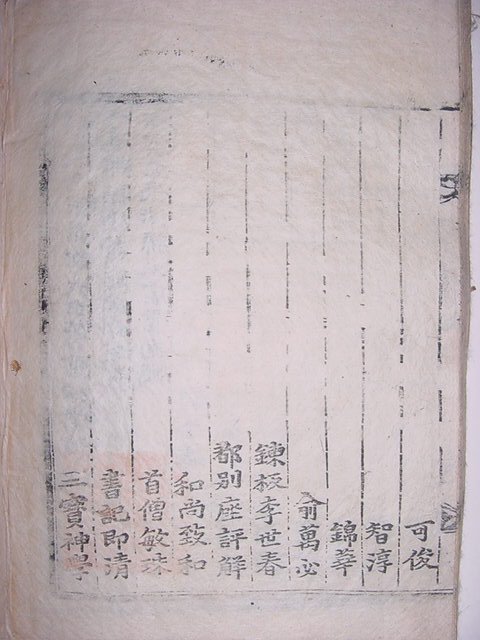 可俊
智淳
錦華
俞萬必
鍊板李世春
都別座評解
和尚致和
首僧敏珠
書記即清
三寶神學